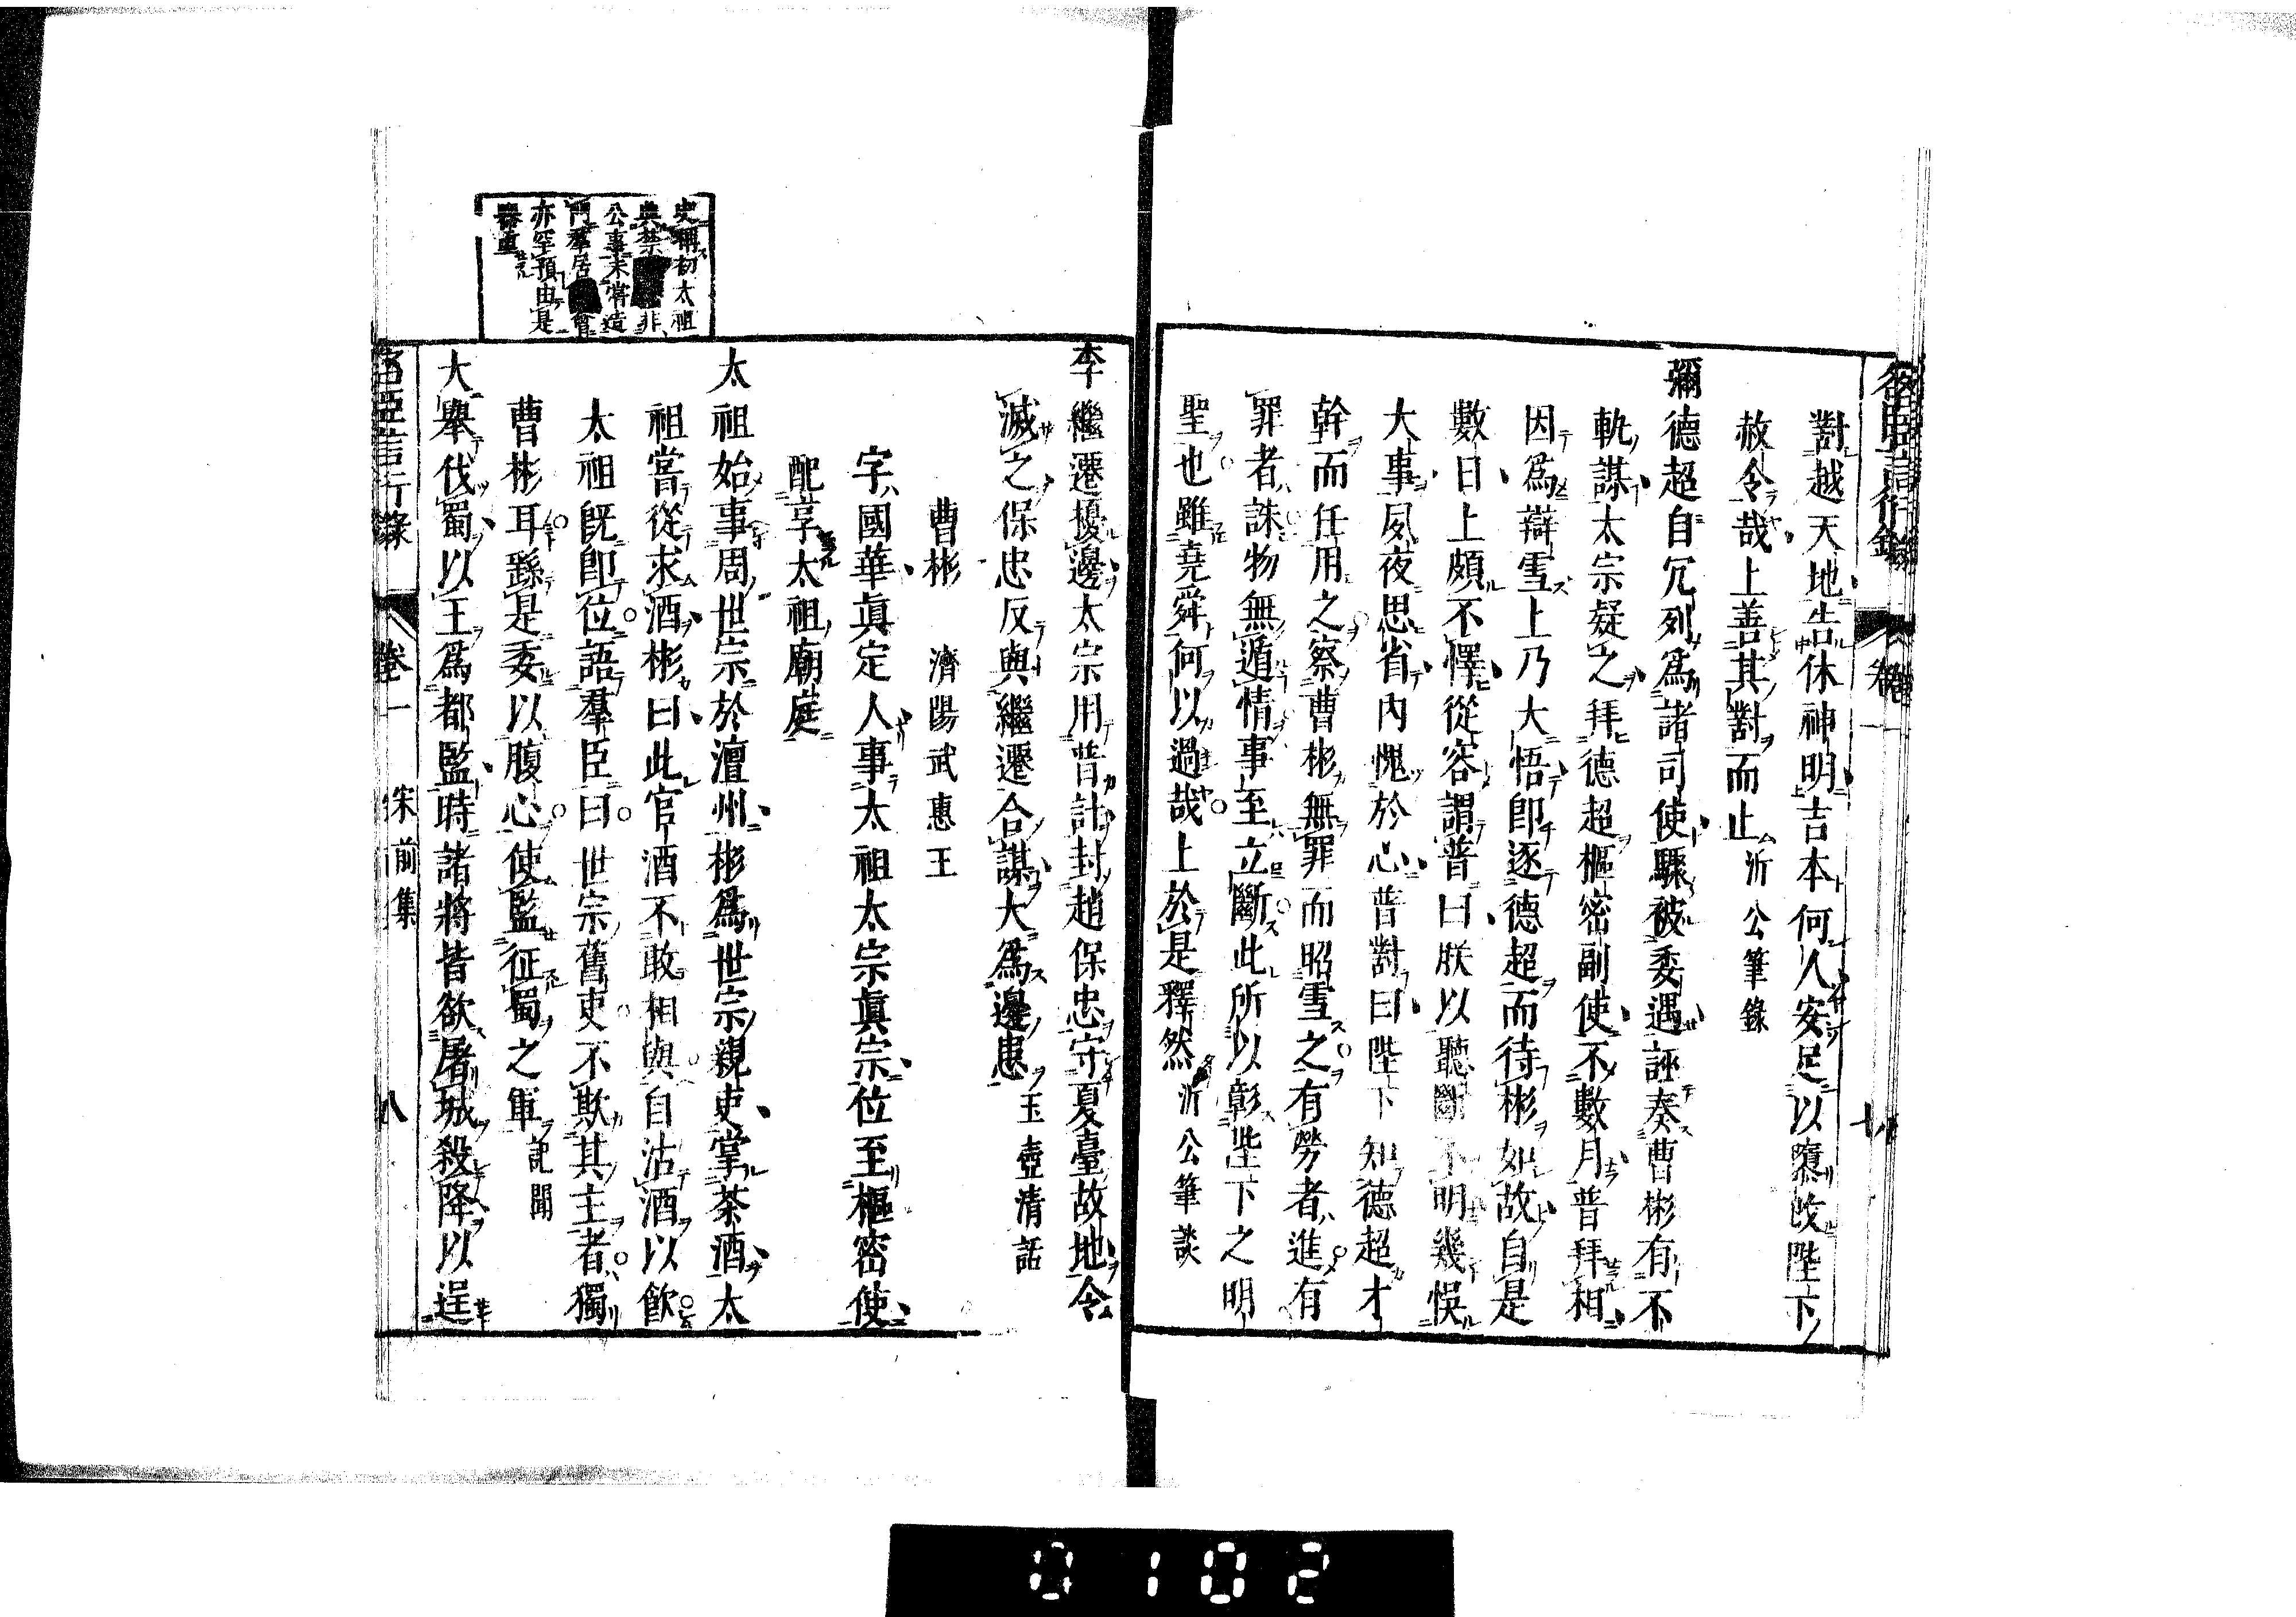 名臣言行錄 卷一 七
對越天地告休神明吉本何人安足以隳改陛下
赦令哉上善其對而止 沂公筆錄
彌德超自冗列爲諸司使驟被委遇誣奏曹彬有不
軌謀太宗疑之拜德超樞密副使不數月普拜相
因爲辯雪上乃大悟卽逐德超而待彬如故自是
數日上頗不懌從容謂普曰朕以聽斷不明幾悞
大事夙夜思省內愧於心普對曰陛下知德超才
幹而任用之察曹彬無罪而昭雪之有勞者進有
罪者誅物無遁情事至立斷此所以彰陛下之明
聖也雖堯舜何以過哉上於是釋然 沂公筆談
李繼遷擾邊太宗用普計封趙保忠守夏臺故地令
滅之保忠反與繼遷合謀大爲邊患 玉壺清話
曹彬 濟陽武惠王
字國華眞定人事太祖太宗眞宗位至樞密使
配享太祖廟庭
太祖始事周世宗於澶州彬爲世宗親吏掌茶酒太
祖嘗從求酒彬曰此官酒不敢相與自沽酒以飮
太祖旣卽位語羣臣曰世宗舊吏不欺其主者獨
曹彬耳繇是委以腹心使監征蜀之軍 記聞
大舉伐蜀以王爲都監時諸將皆欲屠城殺降以逞
史稱初太祖
典禁 非
公事未嘗造
門羣居 會
亦罕預由是
器重
名臣言行錄 卷一 宋前集 八
0102